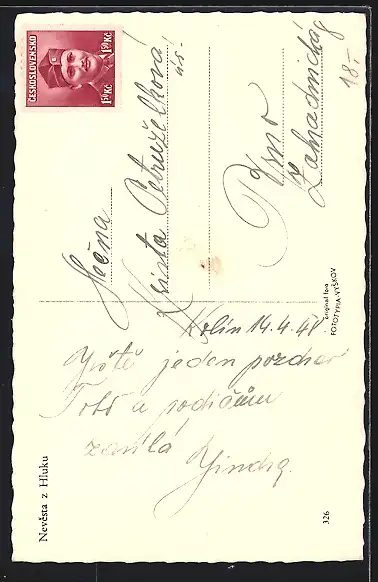 ČESKOSLOVENSKO
1·50 Kčs
1·50 Kčs
Slečna
Krista Petruželková
úř.
Brno
Zahradnická 8
18.-
original foto
FOTOTYPIA-VYŠKOV
Kolín 14.4.48
Ještě jeden pozdrav
Tobě a rodičům
zasílá Jindra.
Nevěsta z Hluku
326